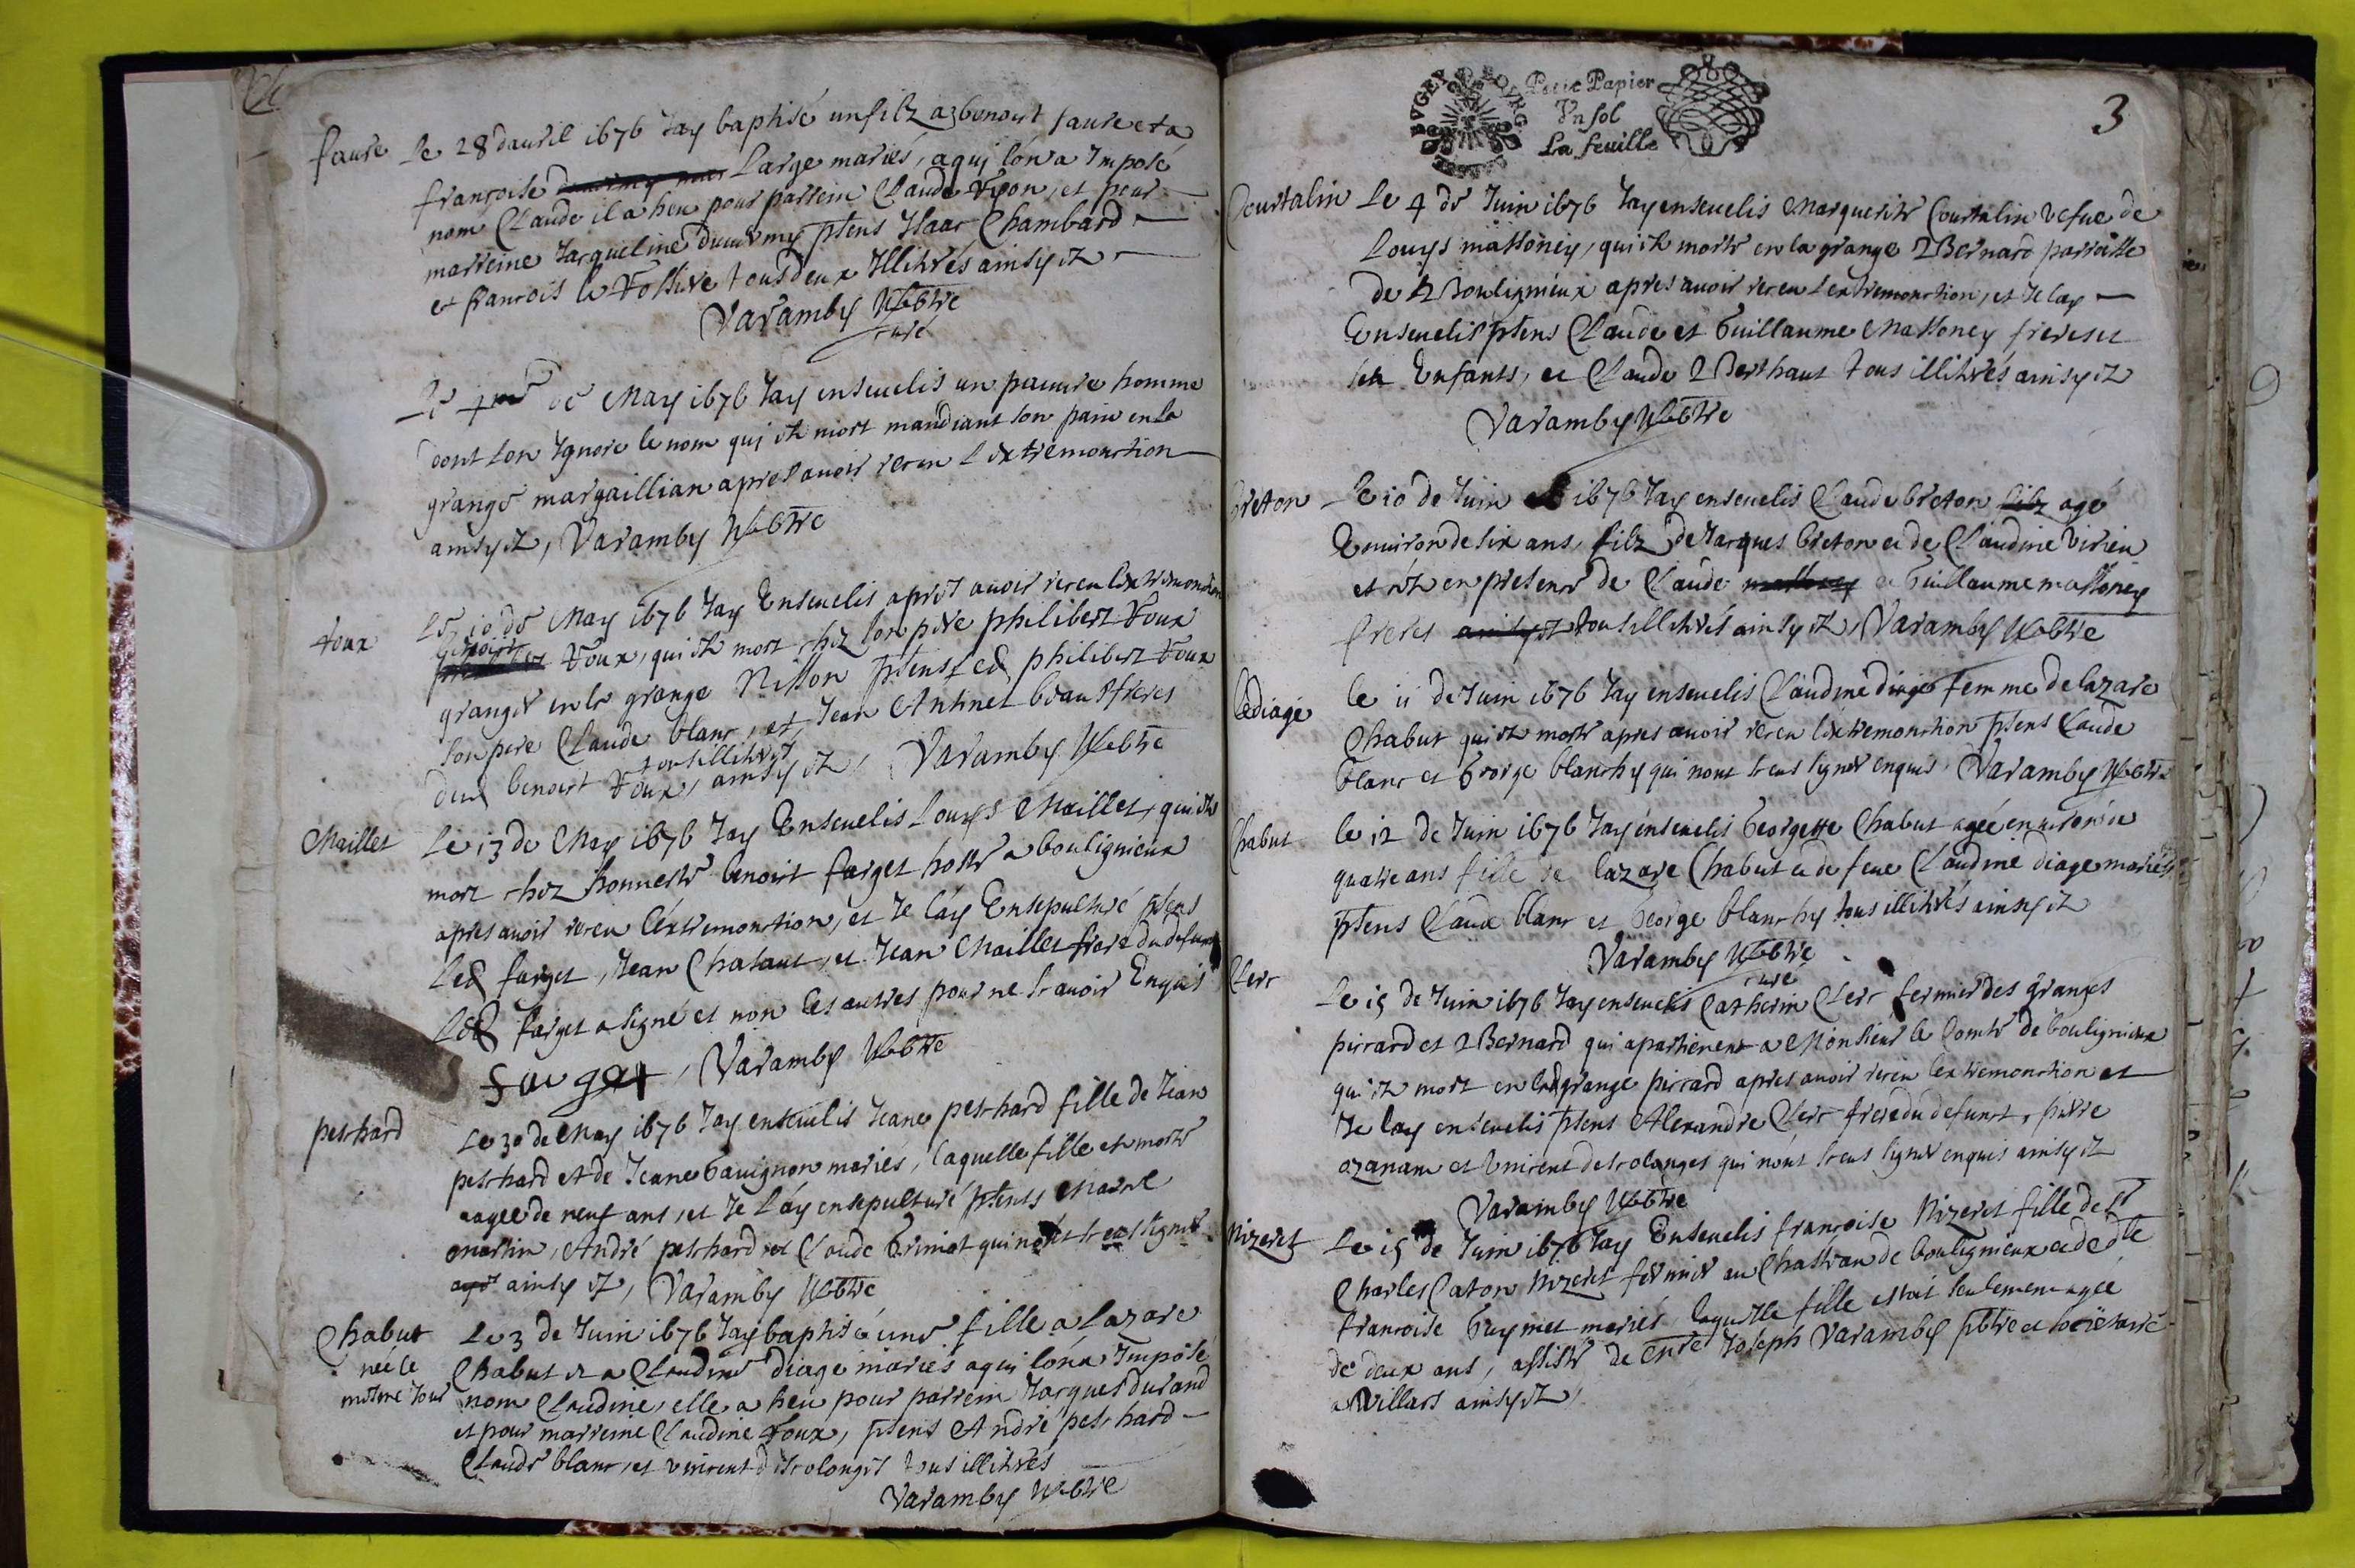 faure
Le 28 dauril 1676 Jay baptisé un filz a benoist faure et a
françoise Large mariés, a quj lon a Jmposé
nom Claude il a heu pour parrein Claude et pour
marreine Jacqueline ptens Isaac Chambard
et francois tous deux Illitrés ainsy est
Varamby pbtre
curé
Le de May 1676 Jay enseuelis un pauure homme
dont lon Ignore le nom qui est mort mandiant son pain en la
grange margaillian apres auoir receu l extremonction
ainsy est, Varamby pbtre
Foux
Le 10 de May 1676 Jay Enseuelis apres auoir receu lextremonction
benoist Foux, qui est mort chez son pere philibert Foux
granger en la grange Nisson ptens led philibert Foux
son pere Claude blanc, et Jean Antinet beaux freres
tous illitrés
dud benoist Foux, ainsy est, Varamby pbtre
Maillet
Le 13 de May 1676 Jay Enseuelis Louys Maillet, qui est
mort chez honneste benoist farget hoste a bouligneux
apres auoir receu lextremonction, et Je lay Ensepulturé ptens
led farget, Jean Chalaut, et Jean Maillet frere du defunct
led farget a signé et non les autres pour ne scauoir Enquis
farget, Varamby pbtre
peschard
Le 30 de May 1676 Jay enseuelis Jeane peschard fille de Jean
peschard et de Jeane Gauignon mariés, laquelle fille est morte
aagée de neuf ans, et Je lay ensepulturé ptents
martin, André peschard, et Claude qui nont sceu signer
ainsy est, Varamby pbtre
Chabut
née le
mesme jour
Le 3 de Juin 1676 Jay baptisé une fille a Lazare
Chabut et a Claudine diage mariés a qui lon a Imposé
nom Claudine, elle a heu pour parrein Jacques durand
et pour marreine Claudine Foux, ptens André peschard
Claude blanc, et vincent descolonges tous illitrés
Varamby pbtre
BVGEY BOVRG
Petit Papier
Vn sol
La feuille
3
Courtalin
Le 4 de Juin 1676 Jay enseuelis Marguerite Courtalin vefue de
Louys massoney, qui est morte en la grange Bernard parroisse
de Bouligneux apres auoir receu lextremonction, et Je lay
Enseuelis ptens Claude et Guillaume Massoney freres et
ses Enfants, et Claude Berthaut tous illitrés ainsy est
Varamby pbtre
breton
Le 10 de Juin 1676 Jay enseuelis Claude breton filz agé
Enuiron de six ans, filz de Jacques breton et de Claudine virieu
et est en presence de Claude massoney et Guillaume massoney
freres ainsy est tous Illitrés ainsy est, Varamby pbtre
Lediage
le 11 de Juin 1676 Jay enseuelis Claudine diage femme de lazare
Chabut qui est morte apres auoir receu lextremonction ptens Claude
blanc et George blanchy qui nont sceus signer enquis Varamby pbtre
Chabut
le 12 de Juin 1676 Jay enseuelis Georgette Chabut agée enuiron de
quatre ans fille de lazare Chabut et de feue Claudine diage mariés
ptens Claude blanc et George blanchy tous illitrés ainsy est
Varamby pbtre
curé
Clerc
Le 15 de Juin 1676 Jay enseuelis Catherin Clerc fermier des granges
piccard et Bernard qui apartienent a Monsieur le Comte de bouligneux
qui est mort en lad grange piccard apres auoir receu lextremonction et
Je lay enseuelis ptens Alexandre Clerc frere du defunct, pierre
ozanam et vincent descolonges qui nont sceus signer enquis ainsy est
Varamby pbtre
Nizeret
Le 15 de Juin 1676 Jay Enseuelis françoise Nizeret fille de Sr
Charles Caton Nizeret fermier au Chasteau de bouligneux et de dlle
francoise Guymet mariés laquelle fille estoit seulement agée
de deux ans, assisté de Joseph Varamby pbtre et
a Villars ainsy est,